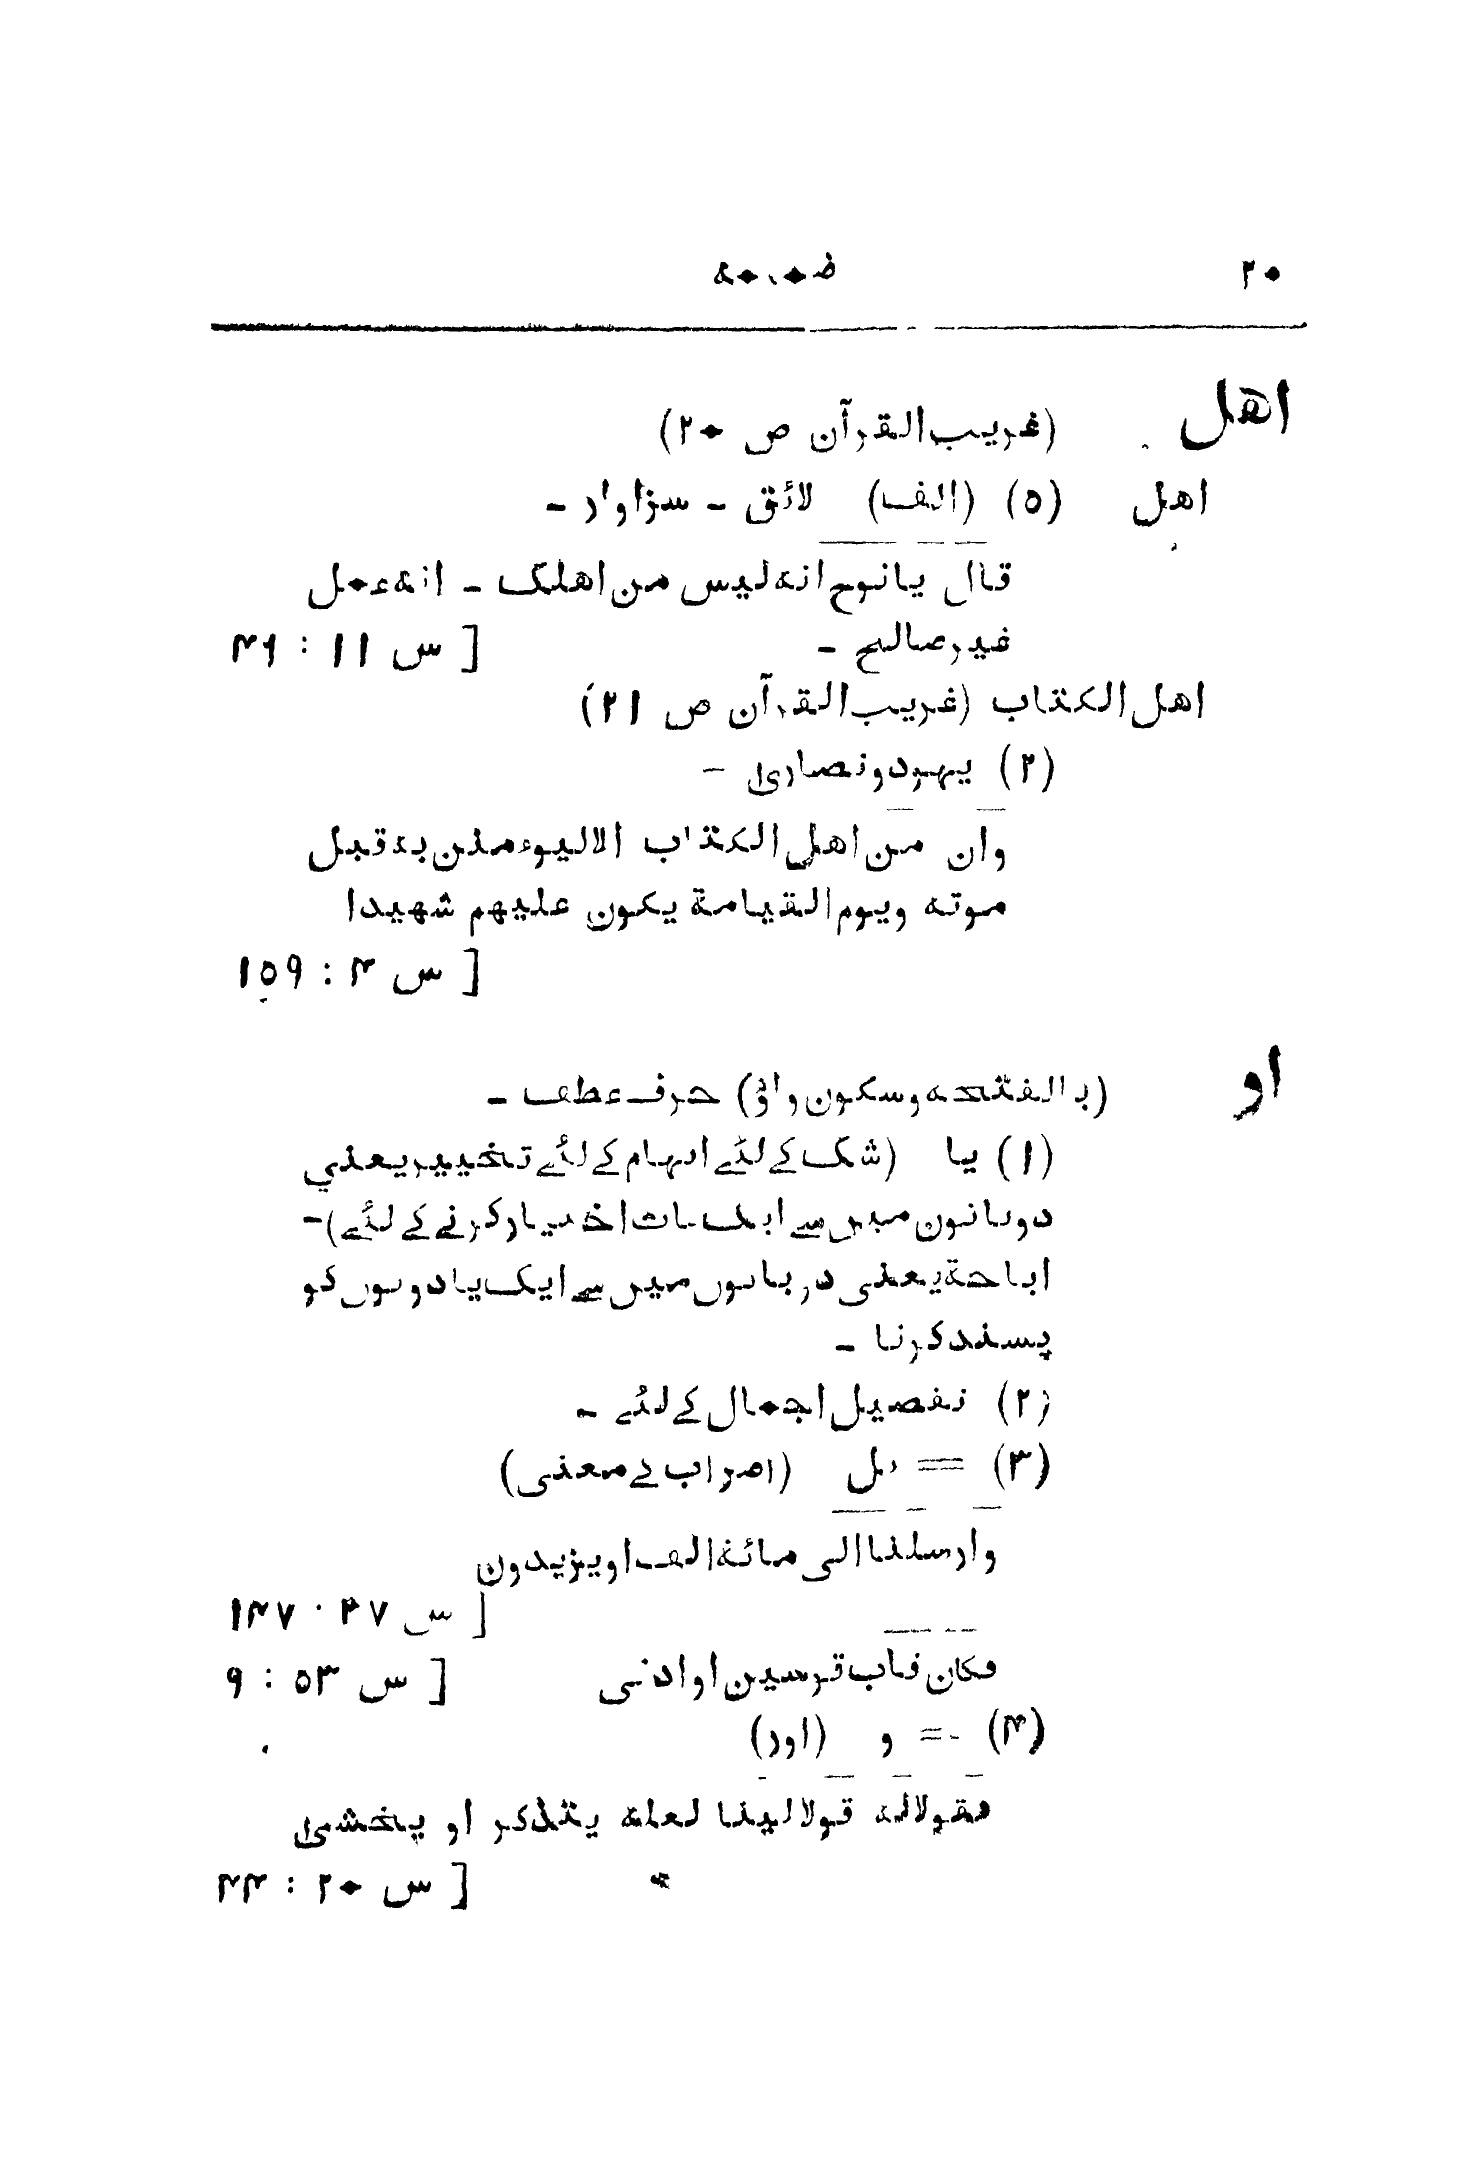 ۲۰ ضمیمه
اهل (غریب القرآن ص ۲۰)
اهل (۵) (الف) لائق - سزاوار -
قال یانوح انه لیس من اهلک - انه عمل
غیر صالح - [ س ۱۱ : ۴۶
اهل الکتاب (غریب القرآن ص ۲۱)
(۲) یهود و نصاری -
وان من اهل الکتاب الا لیوء منن به قبل
موته ویوم القیامة یکون علیهم شهیدا
[ س ۴ : ۱۵۹
او (بالفتحه و سکون واؤ) حرف عطف -
(۱) یا (شک کے لئے ابہام کے لئے تخییر یعنی
دو باتوں میں سے ایک بات اختیار کرنے کے لئے) -
اباحة یعنی دو باتوں میں سے ایک یا دونوں کو
پسند کرنا -
(۲) تفصیل اجمال کے لئے -
(۳) = بل (اضراب کے معنی)
وارسلنا الی مائة الف او یزیدون
[ س ۳۷ : ۱۴۷
فکان قاب قوسین او ادنی [ س ۵۳ : ۹
(۴) = و (اور)
فقولا له قولا لینا لعله یتذکر او یخشی
[ س ۲۰ : ۴۴